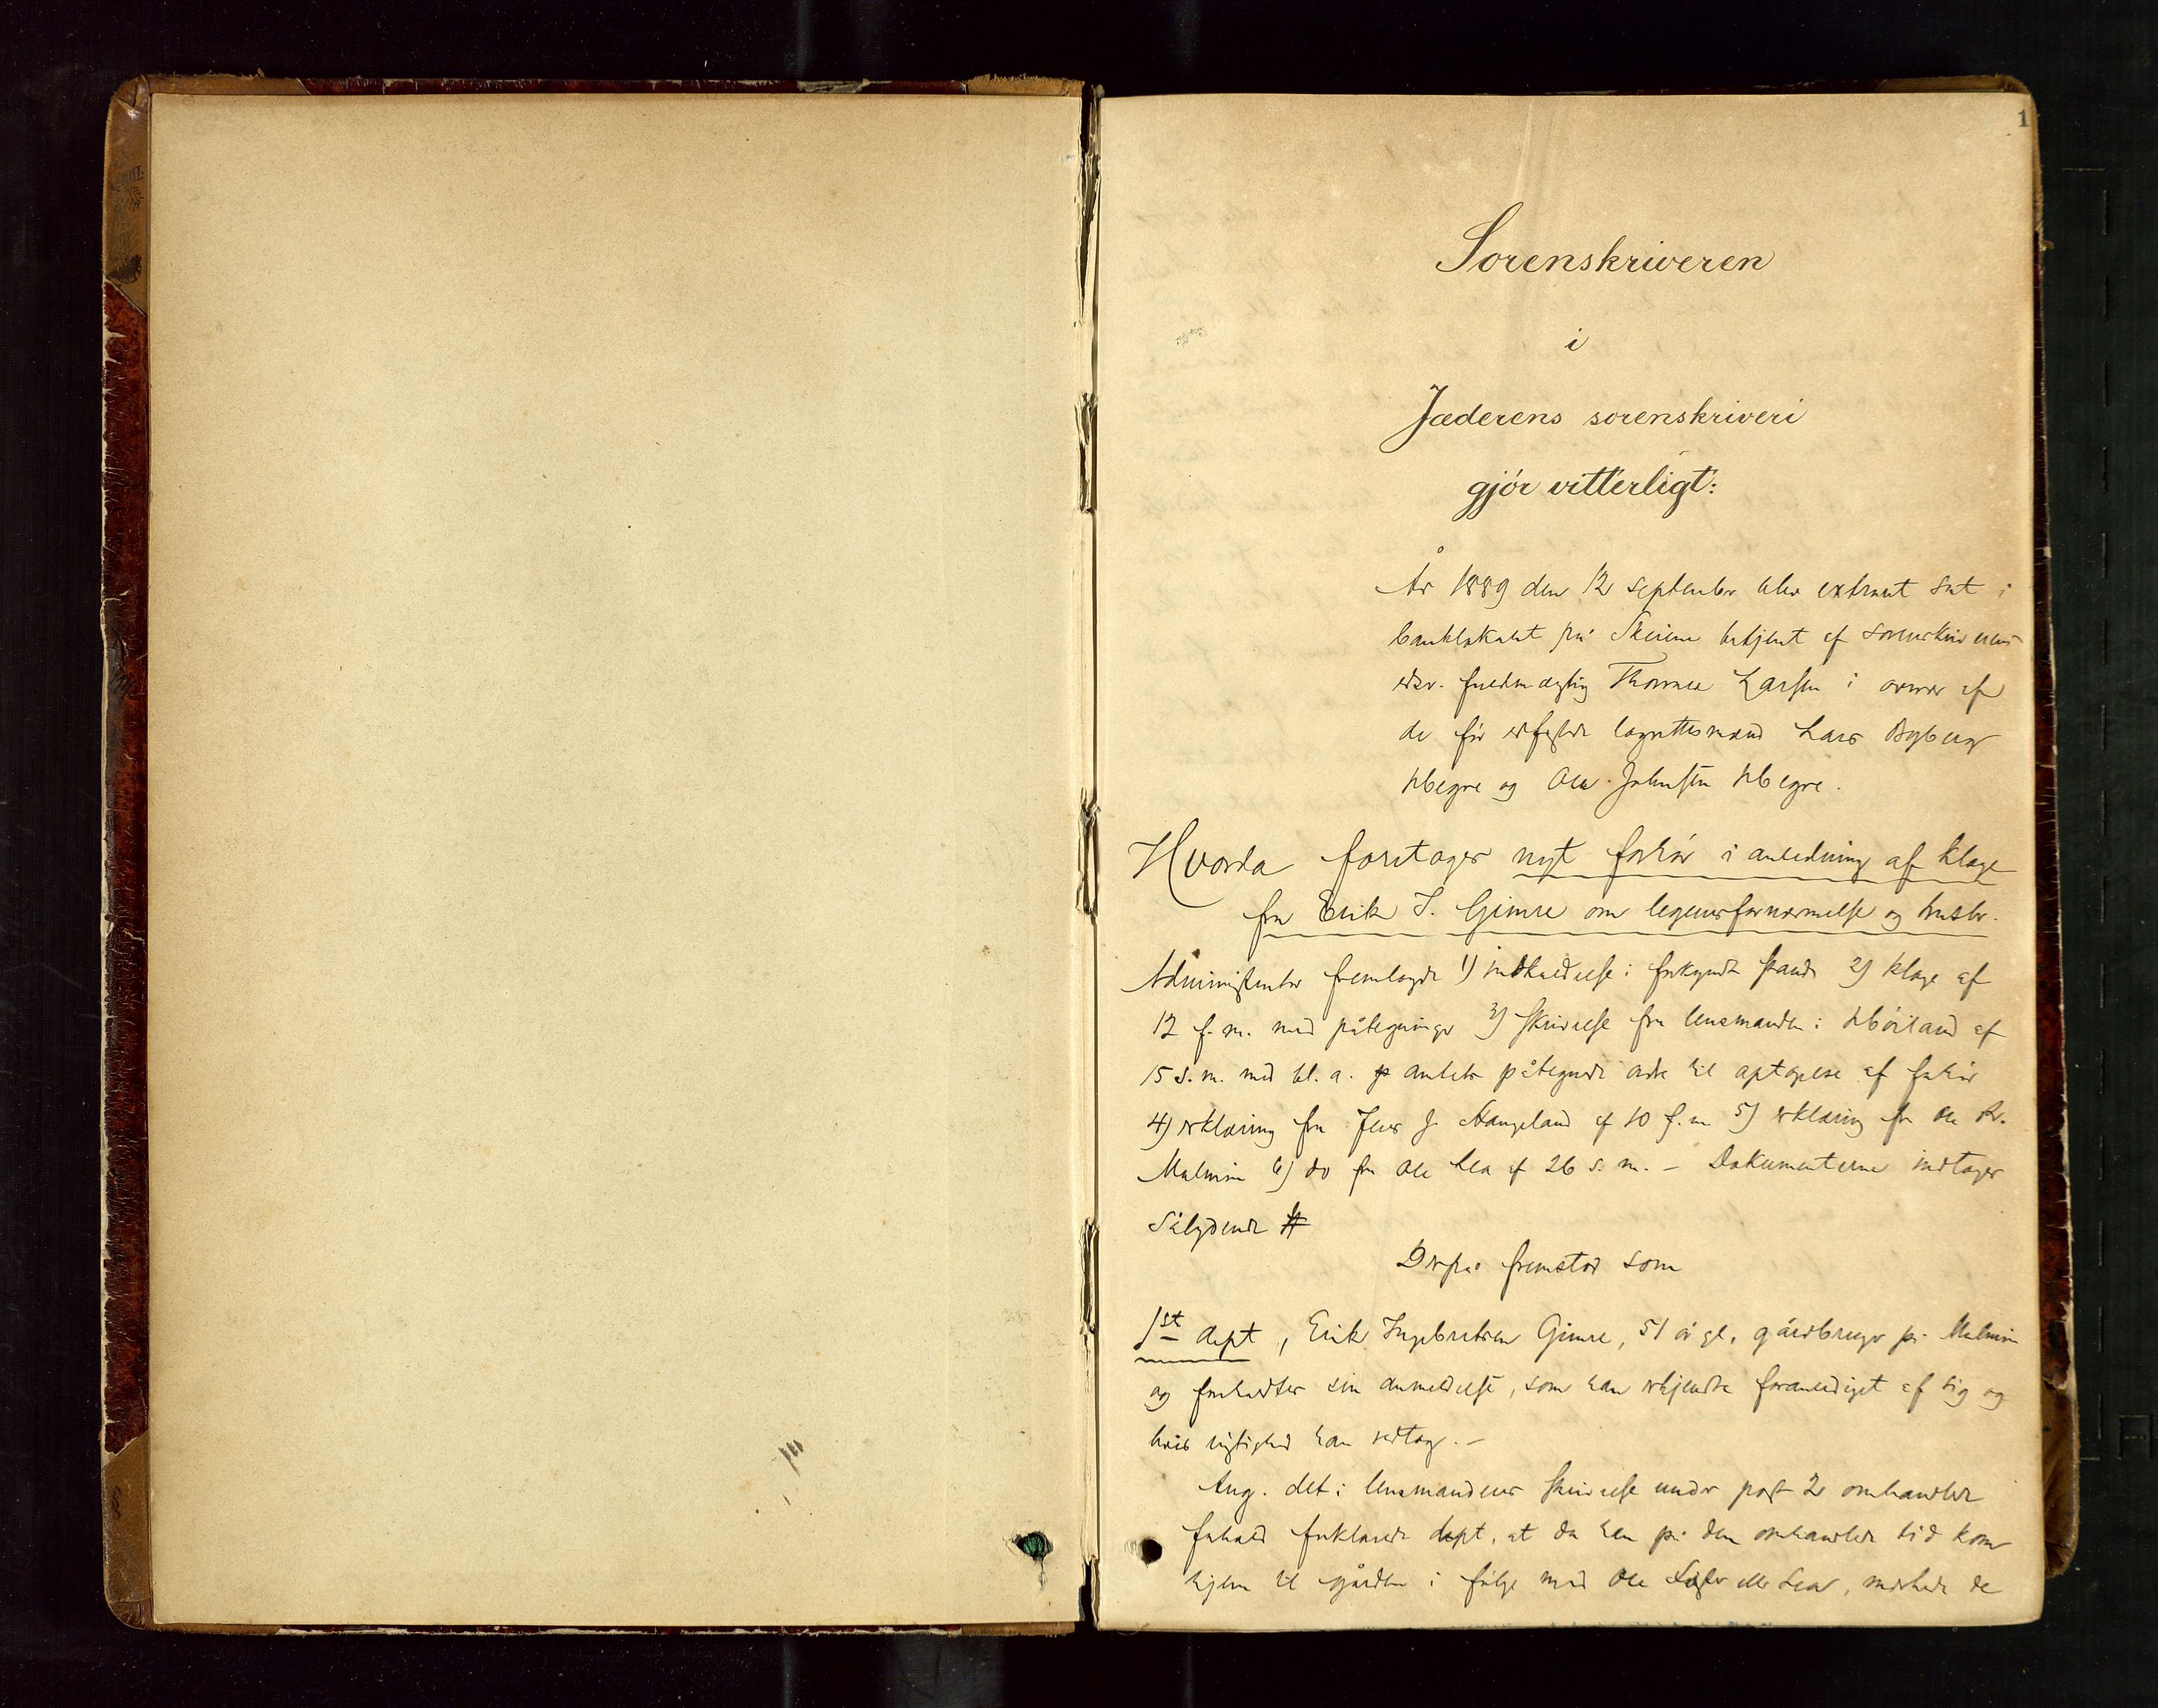 1
Sorenskriveren
i
Jæderens sorenskriveri
gjör vitterligt:
År 1889 den 12 september blev extraret sat i
banklokalet på Skeiene betjent af sorenskriverens
edsv. fuldmægtig Thomas Larsen i overvær af
de før edfæstede lagrettesmænd Lars Byberg
Hegre og Ole Johnsen Hegre.
Hvorda foretages nyt forhör i anledning af klage
fra Erik I. Gimre om legemsfornærmelse og trusler.
Administrator fremlagde 1) indkaldelse i forkyndt stand 2) klage af
12 f.m. med påtegninger 3) skrivelse fra lensmanden i Höiland af
15 s.m. med bl.a. amtets påtegnede ordre til optagelse af forhör
4) erklæring fra Jens J. Stangeland af 10 f.m. 5) erklæring fra Ole
Malmin 6) do fra Ole Lea af 26 s.m. – Dokumenterne indtages
sålydende #
Derpå fremstod som
1st dept, Erik Ingebretsen Gimre, 51 år gl., gårdbruger på Malmin
og foreholdtes sin anmeldelse, som han erkjendte foranlediget af sig og
hvis rigtighed han vedtog. –
Ang. det i lensmandens skrivelse under post 2 omhandlede
forhold forklarede dept. at da han på den omhandlede tid kom
hjem til gården i fölge med Ole eller Lea, mødte de